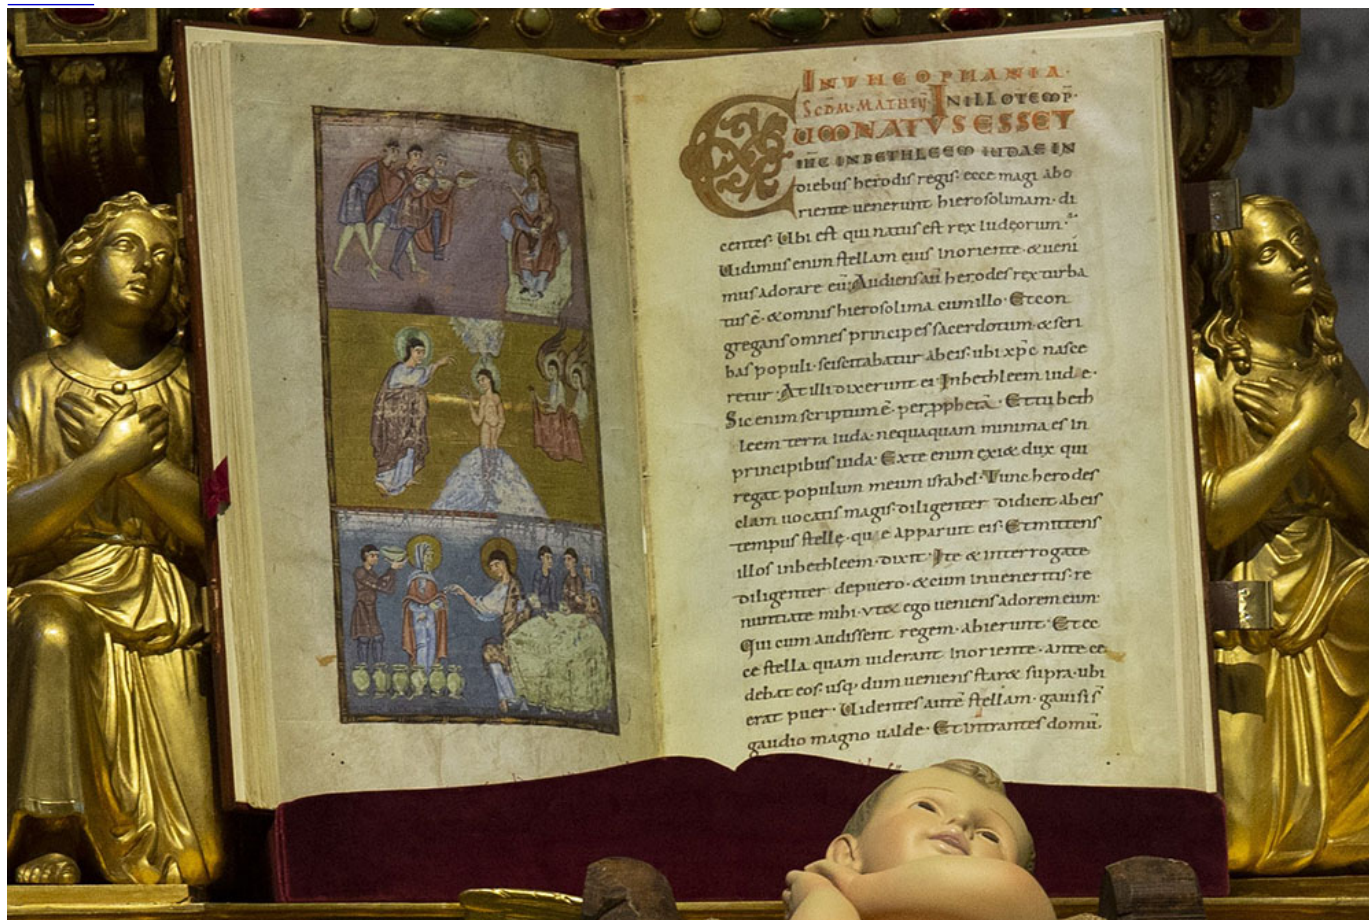 IN THEOPHANIA·
SCDM·MATHEŪ·IN ILLO TEMP̄·
CUM NATUS ESSET
IHC IN BETHLEEM IUDAE IN
diebus herodis regis· ecce magi abo
riente uenerunt hierosolimam· di
centes· Ubi est qui natus est rex iudęorum·
Uidimus enim stellam eius inoriente· & ueni
mus adorare eū· Audiens aū herodes rex turba
tus ē· & omnis hierosolima cum illo· Et con
gregans omnes principes sacerdotum· & scri
bas populi· sciscitabatur abeis· ubi xp̄c nasce
retur· At illi dixerunt ei· Inbethleem iudę·
Sic enim scriptum ē· per ꝓphetā· Et tu beth
leem terra iuda· nequaquam minima es in
principibus iuda· Exte enim exi& dux qui
regat populum meum israhel· Tunc herodes
clam uocatis magis· diligenter didicit abeis
tempus stellę· quę apparuit eis· Et mittens
illos inbethleem· dixit· Ite & interrogate
diligenter depuero· & cum inueneritis· re
nuntiate mihi· vt & ego ueniens adorem eum·
Qui cum audissent regem· abierunt· Et ec
ce stella quam uiderant inoriente· ante ce
debat eos· usq; dum ueniens star& supra· ubi
erat puer· Uidentes autē stellam· gauisi s̄
gaudio magno ualde· Et intrantes domū·